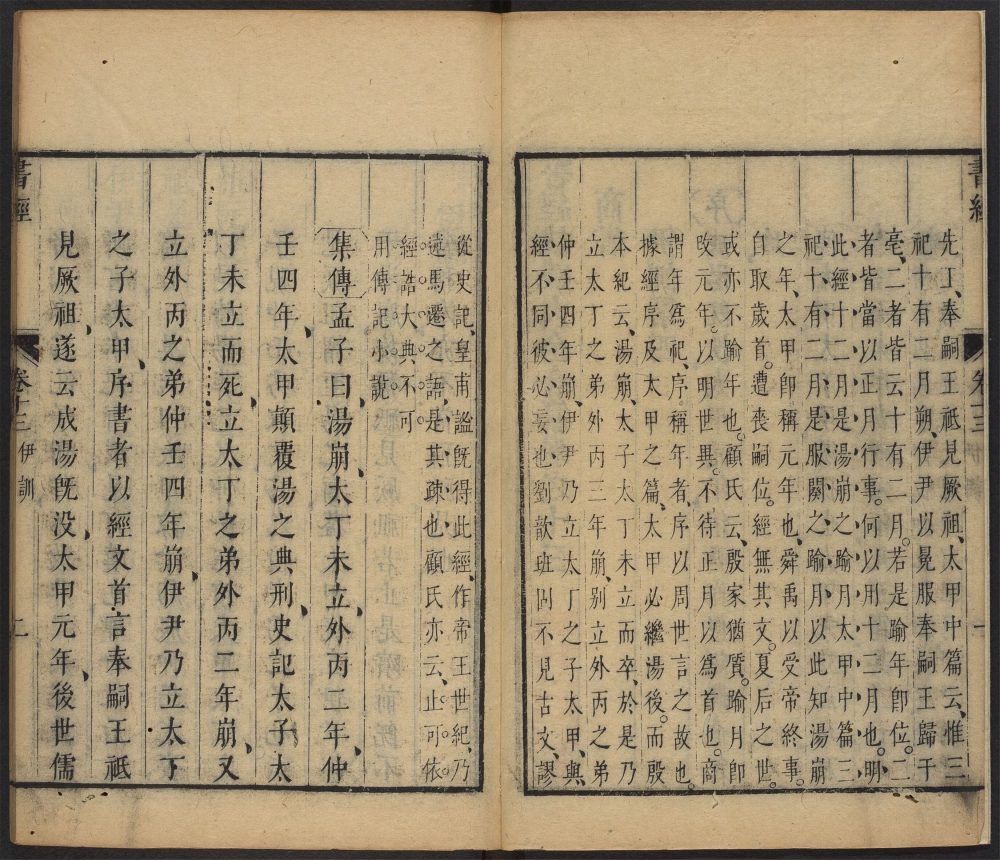 書經
先王奉嗣王祗見厥祖、太甲中篇云、惟三
祀十有二月朔、伊尹以冕服奉嗣王歸于
亳、二者皆云十有二月。若是踰年卽位。二
者皆當以正月行事。何以用十二月也。明
此經十二月是湯崩之踰月、太甲中篇三
祀十有二月是服闋之踰月、以此知湯崩
之年、太甲卽稱元年也、舜禹以受帝終事。
自取歲首。遭喪嗣位。經無其文。夏后之世。
或亦不踰年也。顧氏云、殷家猶質。踰月卽
改元年。以明世異。不待正月以爲首也。商
謂年爲祀、序稱年者、序以周世言之故也。
據經序及太甲之篇、太甲必繼湯後。而殷
本紀云、湯崩、太子太丁未立而卒、於是乃
立太丁之弟外丙三年崩、别立外丙之弟
仲壬四年崩、伊尹乃立太丁之子太甲、與
經不同、彼必妄也、劉歆班固不見古文、謬
從史記、皇甫謐旣得此經、作帝王世紀、乃
述馬遷之語、是其疎也。顧氏亦云、止可依
經誥大典、不可
用傳記小說
集傳孟子曰、湯崩、太丁未立、外丙二年、仲
壬四年、太甲顚覆湯之典刑、史記太子太
丁未立而死、立太丁之弟外丙二年崩、又
立外丙之弟仲壬四年崩、伊尹乃立太丁
之子太甲、序書者以經文首言奉嗣王祗
見厥祖、遂云成湯旣没、太甲元年、後世儒
書經
卷十三
伊訓
二